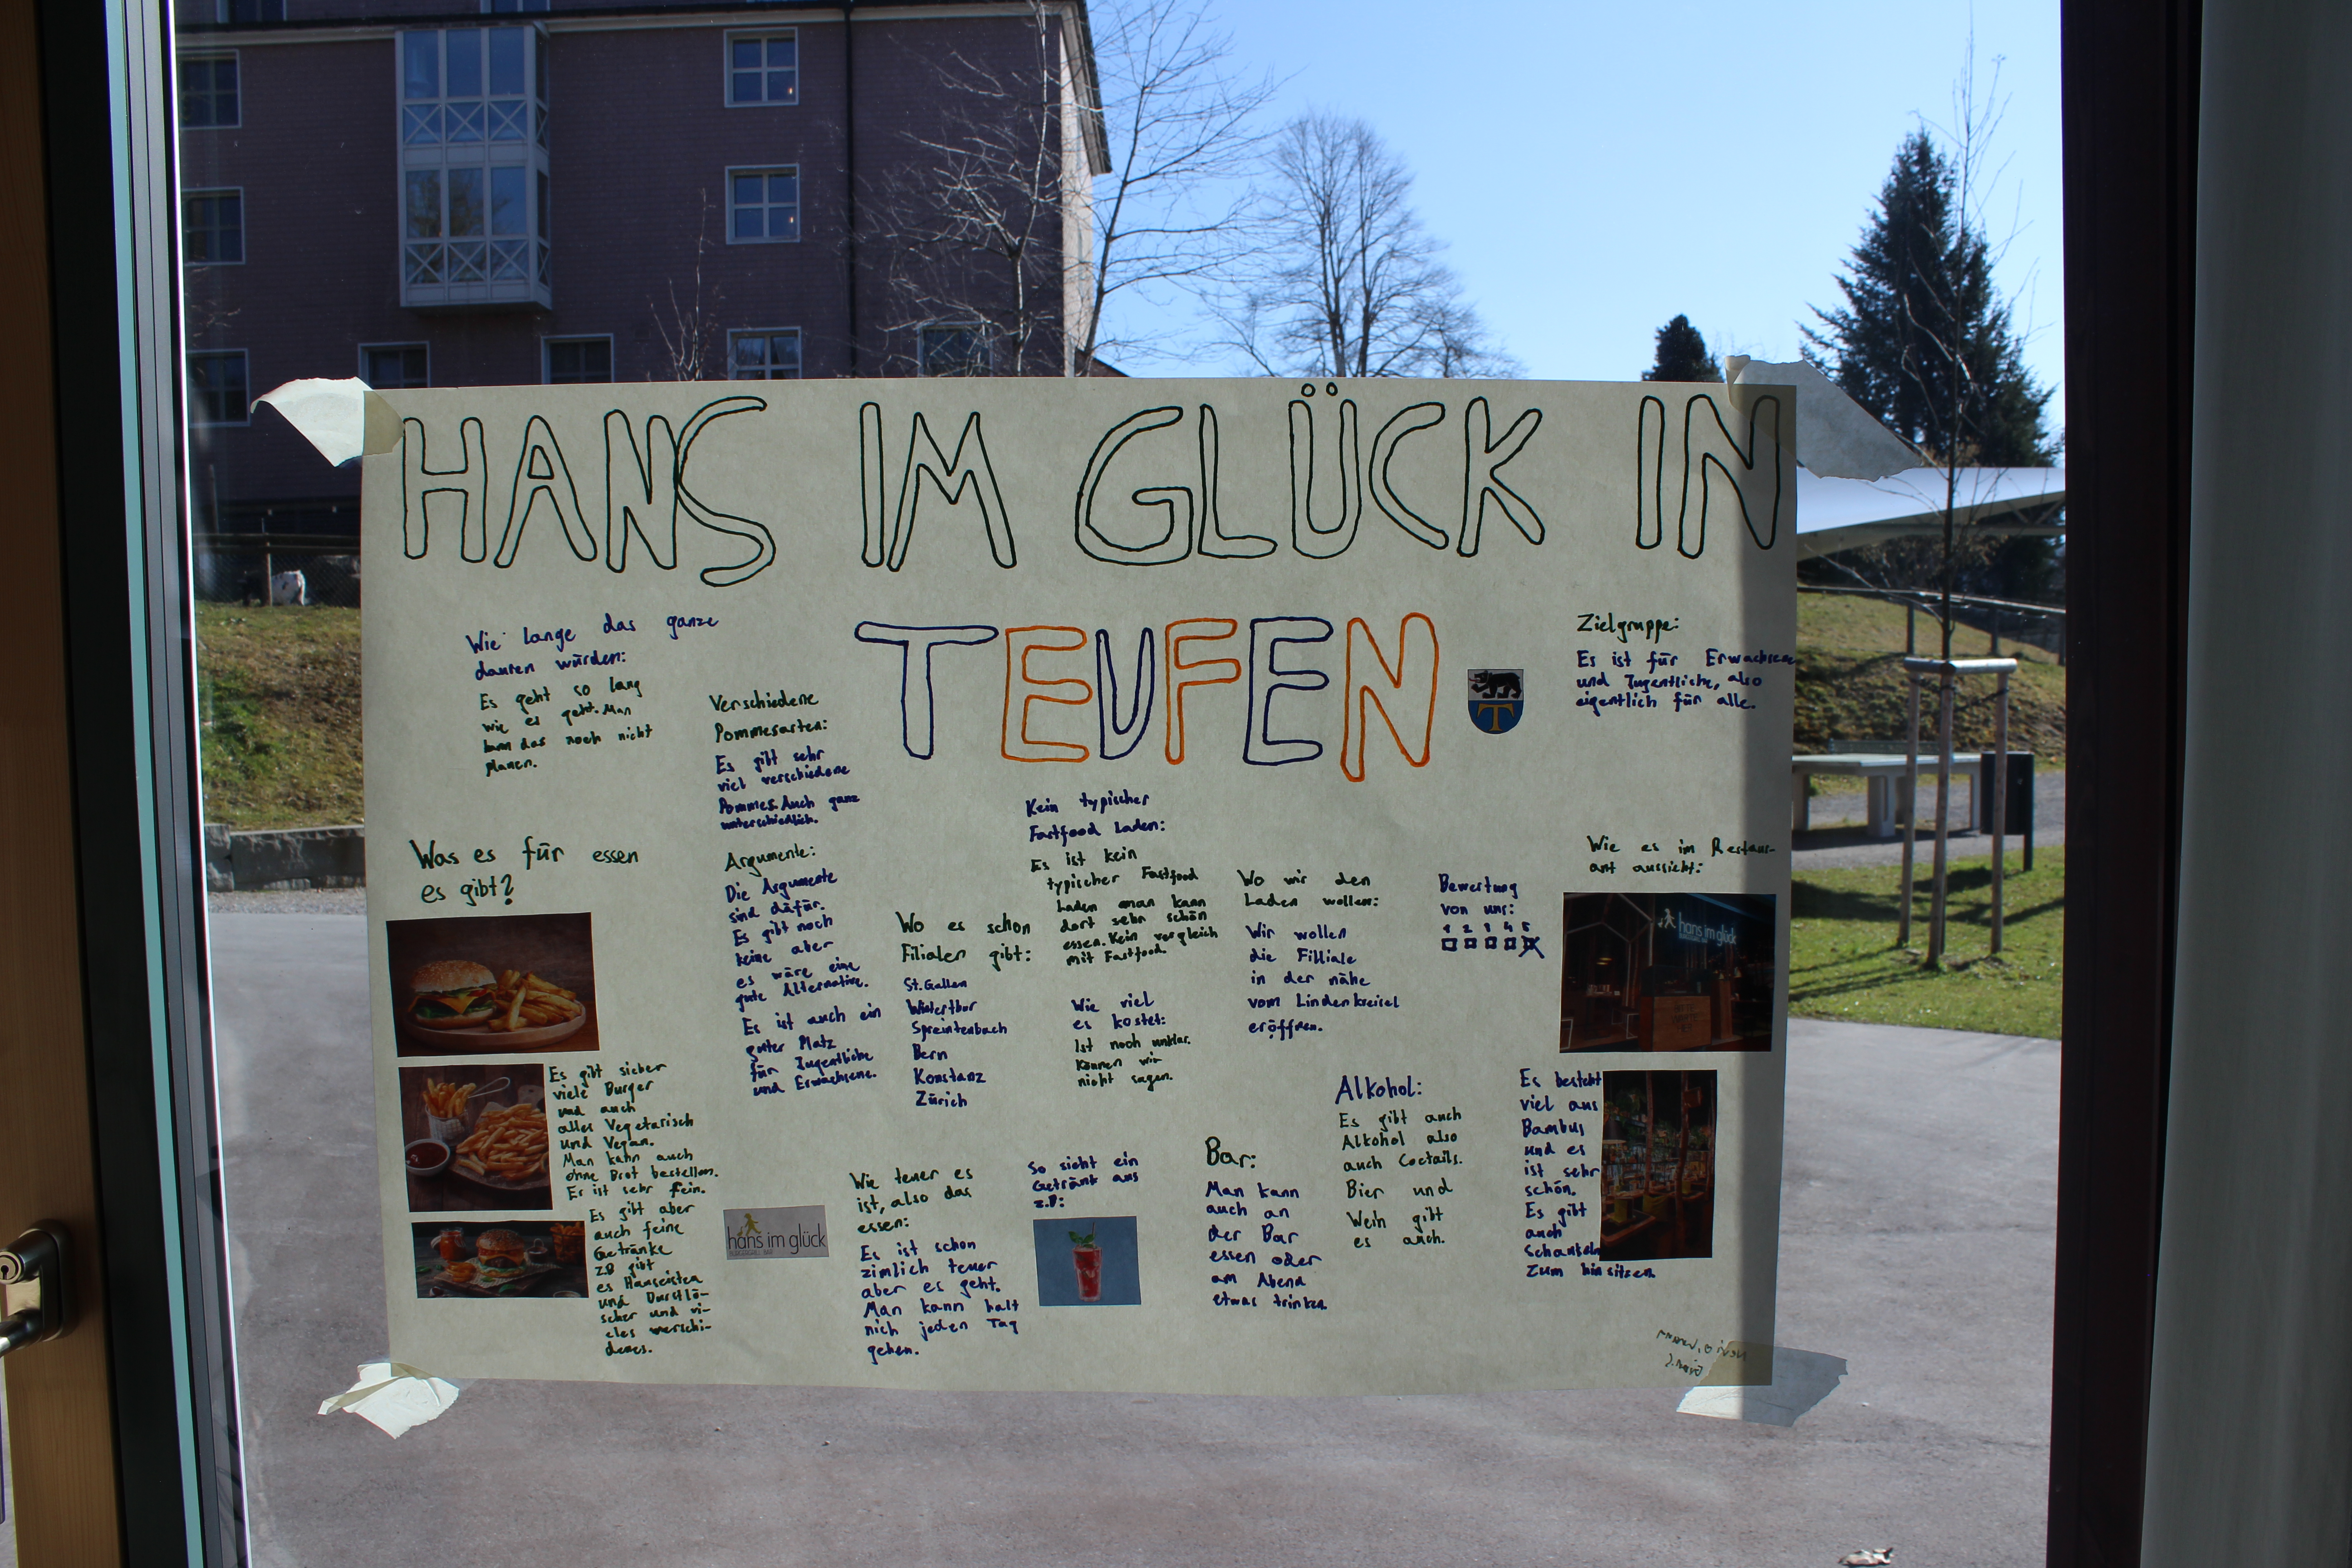 HANS IM GLÜCK IN
TEUFEN
Wie lange das ganze
dauren würden:
Es geht so lang
wie es geht. Man
kann das noch nicht
planen.
Verschiedene
Pommesarten:
Es gibt sehr
viel verschiedene
Pommes. Auch ganz
unterschiedlich.
Zielgruppe:
Es ist für Erwachsene
und Jugentliche, also
eigentlich für alle.
Was es für essen
es gibt?
Es gibt sieber
viele Burger
und auch
alles Vegetarisch
und Vegan.
Man kann auch
ohne Brot bestellen.
Er ist sehr fein.
Es gibt aber
auch feine
Getränke
z.B gibt
es Hanseistea
und Durstlö-
scher und vi-
eles verschi-
denes.
Argumente:
Die Argumente
sind dafür.
Es gibt noch
keine aber
es wäre eine
gute Alternative.
Es ist auch ein
guter Platz
für Jugentliche
und Erwachsene.
hans im glück
BURGERGRILL BAR
Wo es schon
Filialen gibt:
St.Gallen
Wintertbur
Spreintenbach
Bern
Konstanz
Zürich
Kein typischer
Fastfood Laden:
Es ist kein
typischer Fastfood
Laden man kann
dort sehr schön
essen. Kein vergleich
mit Fastfood.
Wie viel
es kostet:
Ist noch unklar.
Können wir
nicht sagen.
Wie teuer es
ist, also das
essen:
Es ist schon
zimlich teuer
aber es geht.
Man kann halt
nich jeden Tag
gehen.
So sieht ein
Getränt aus
z.B:
Wo wir den
Laden wollen:
Wir wollen
die Filliale
in der nähe
vom Lindenkreisel
eröffnen.
Bewertung
von uns:
1 2 3 4 5
Bar:
Man kann
auch an
der Bar
essen oder
am Abend
etwas trinken
Alkohol:
Es gibt auch
Alkohol also
auch Coctails.
Bier und
Wein gibt
es auch.
Wie es im Restaur-
ant aussieht:
hans im glück
Es besteht
viel aus
Bambus
und es
ist sehr
schön.
Es gibt
auch
Schaukeln
zum hinsitzen.